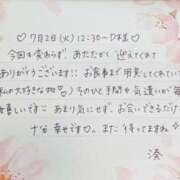 ♡ 7月2日(火) 12:30~ D様 ♡
今回も変わらず、あたたかく迎えてくれて
ありがとうございます!! お食事まで用意してくれていて
(私の大好きな物♡) そのひと手間や気遣いが毎
嬉しいです あまり気にせず、お会いできるだけ
十分 幸せです♡ また 待ってますね
湊